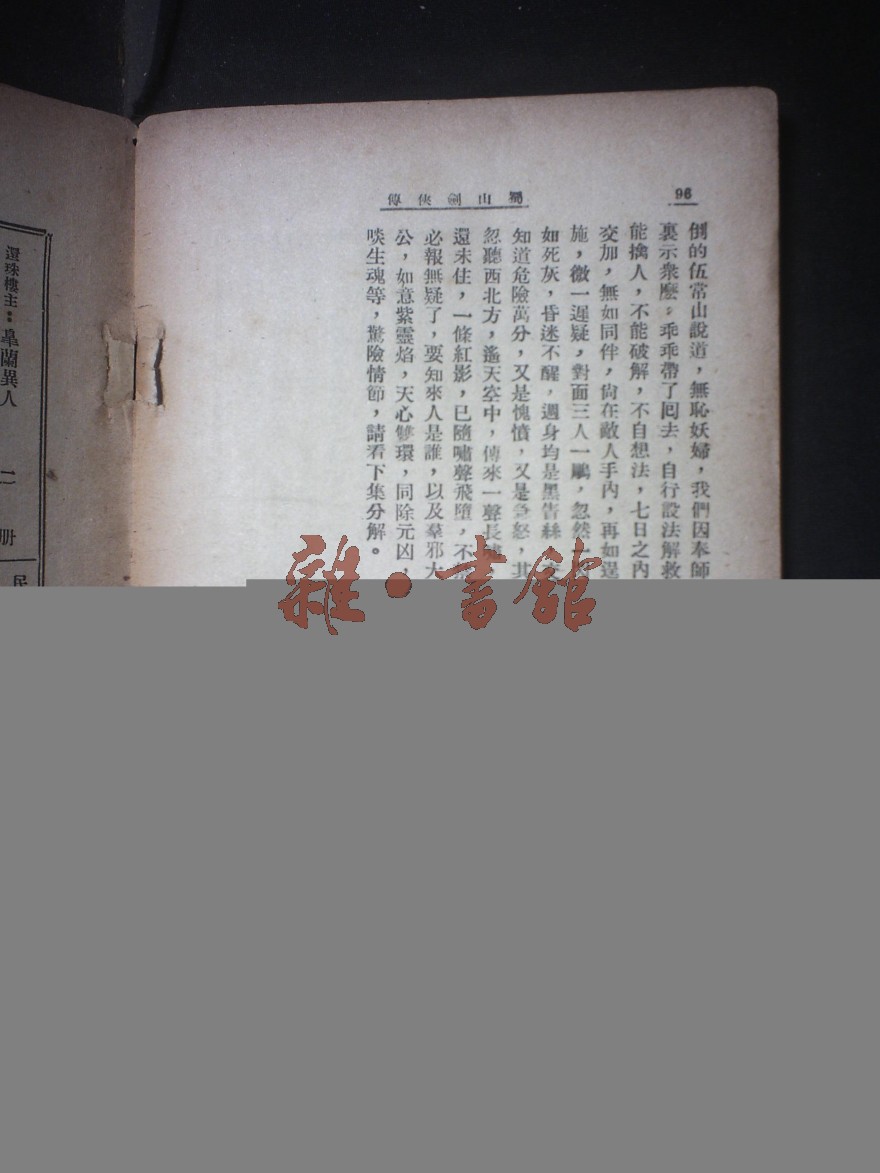 96
蜀山劍俠傳
倒的伍常山說道，無恥妖婦，我們因奉師
裏示衆麽，乖乖帶了囘去，自行設法解救
能擒人，不能破解，不自想法，七日之內
交加，無如同伴，尙在敵人手內，再如逞
施，微一遲疑，對面三人一鵰，忽然一
如死灰，昏迷不醒，週身均是黑靑絲
知道危險萬分，又是愧憤，又是急怒，北
忽聽西北方，遙天空中，傳來一聲長嘯
還未住，一條紅影，已隨嘯聲飛墮，不
必報無疑了，要知來人是誰，以及羣邪大
公，如意紫靈焰，天心雙環，同除元凶，
啖生魂等，驚險情節，請看下集分解。
還珠樓主：皐蘭異人 二册
民
雜·書館